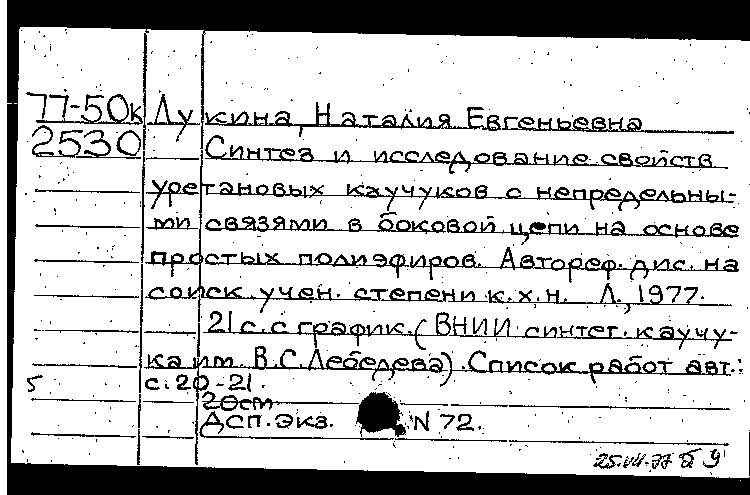 77-50к Лукина, Наталия Евгеньевна
2530 Синтез и исследование свойств
уретановых каучуков с непредельны-
ми связями в боковой цепи на основе
простых полиэфиров. Автореф. дис. на
соиск. учен. степени к.х.н. Л., 1977.
21 с. с график. (ВНИИ синтет. каучу-
ка им. В.С. Лебедева). Список работ авт.:
5 с. 20-21.
20см
Дсп. экз. N 72.
25.VII.77 9